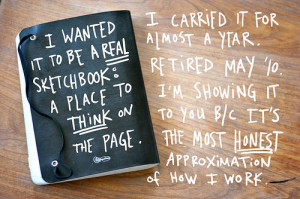 I WANTED
IT TO BE A REAL
SKETCHBOOK:
A PLACE TO
THINK ON
THE PAGE.
I CARRIED IT FOR
ALMOST A YEAR.
RETIRED MAY '10
I'M SHOWING IT
TO YOU B/C IT'S
THE MOST HONEST
APPROXIMATION
OF HOW I WORK.